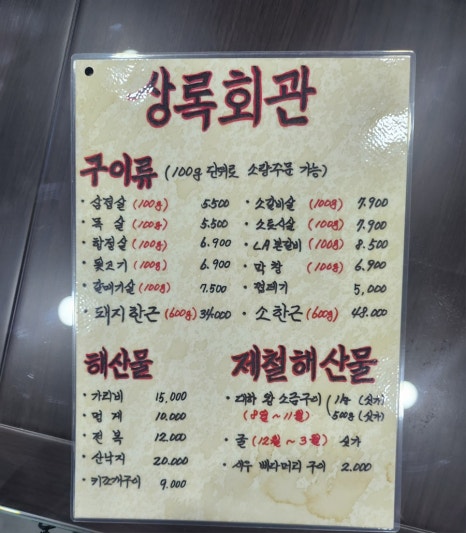 상록회관
구이류 (100g 단위로 소량주문 가능)
· 삼겹살 (100g) 5.500
· 목 살 (100g) 5.500
· 항정살 (100g) 6.900
· 뒷고기 (100g) 6.900
· 갈매기살 (100g) 7.500
· 돼지한근 (600g) 34.000
· 소갈비살 (100g) 7.900
· 소토시살 (100g) 7.900
· LA본갈비 (100g) 8.500
· 막 창 (100g) 6.900
· 껍데기 5,000
· 소한근 (600g) 48.000
해산물
· 가리비 15,000
· 멍게 10.000
· 전 복 12.000
· 산낙지 20.000
· 키조개구이 9.000
제철해산물
· 대하 왕 소금구이 / 1kg (싯가)
(8월~11월) 500g (싯가)
· 굴 (12월~3월) 싯가
· 새우 버터머리 구이 2.000